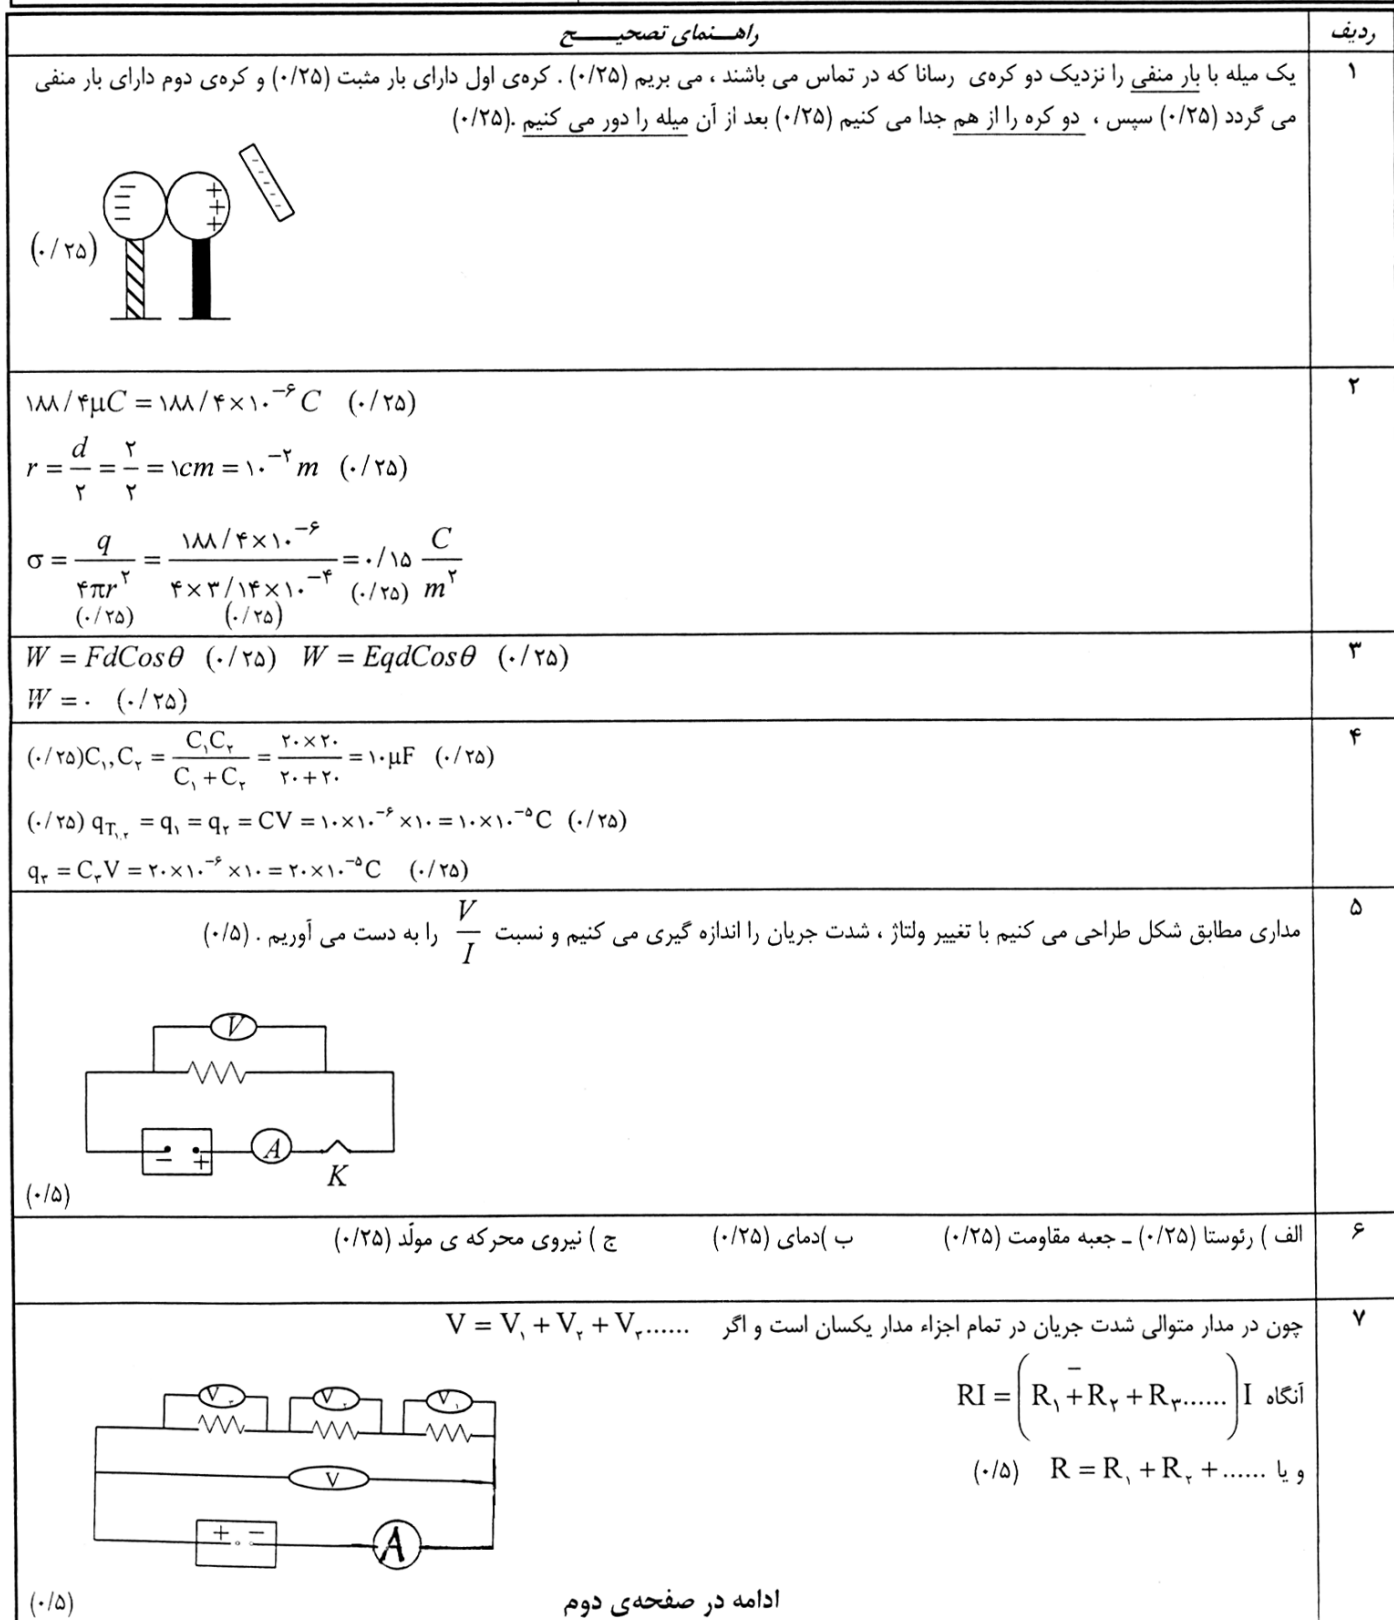 راهنمای تصحیح
ردیف
۱
یک میله با بار منفی را نزدیک دو کره‌ی رسانا که در تماس می باشند ، می بریم (۰/۲۵) . کره‌ی اول دارای بار مثبت (۰/۲۵) و کره‌ی دوم دارای بار منفی
می گردد (۰/۲۵) سپس ، دو کره را از هم جدا می کنیم (۰/۲۵) بعد از آن میله را دور می کنیم .(۰/۲۵)
(۰/۲۵)
۲
۱۸۸/۴μC = ۱۸۸/۴×۱۰^−۶ C (۰/۲۵)
r = d/۲ = ۲/۲ = ۱cm = ۱۰^−۲ m (۰/۲۵)
σ = q/۴πr^۲ = ۱۸۸/۴×۱۰^−۶ / ۴×۳/۱۴×۱۰^−۴ = ۰/۱۵ C/m^۲
(۰/۲۵) (۰/۲۵) (۰/۲۵)
۳
W = FdCosθ (۰/۲۵) W = EqdCosθ (۰/۲۵)
W = ۰ (۰/۲۵)
۴
(۰/۲۵)C₁,C₂ = C₁C₂/C₁+C₂ = ۲۰×۲۰/۲۰+۲۰ = ۱۰μF (۰/۲۵)
(۰/۲۵) q_T₁,₂ = q₁ = q₂ = CV = ۱۰×۱۰^−۶×۱۰ = ۱۰×۱۰^−۵C (۰/۲۵)
q₃ = C₃V = ۲۰×۱۰^−۶×۱۰ = ۲۰×۱۰^−۵C (۰/۲۵)
۵
مداری مطابق شکل طراحی می کنیم با تغییر ولتاژ ، شدت جریان را اندازه گیری می کنیم و نسبت V/I را به دست می آوریم . (۰/۵)
V
− +
A
K
(۰/۵)
۶
الف ) رئوستا (۰/۲۵) ـ جعبه مقاومت (۰/۲۵) ب )دمای (۰/۲۵) ج ) نیروی محرکه ی مولّد (۰/۲۵)
۷
چون در مدار متوالی شدت جریان در تمام اجزاء مدار یکسان است و اگر V = V₁ + V₂ + V₃......
آنگاه RI = (R₁ + R₂ + R₃......)I
و یا R = R₁ + R₂ + ...... (۰/۵)
V₃ V₂ V₁
V
+ −
A
(۰/۵)
ادامه در صفحه‌ی دوم